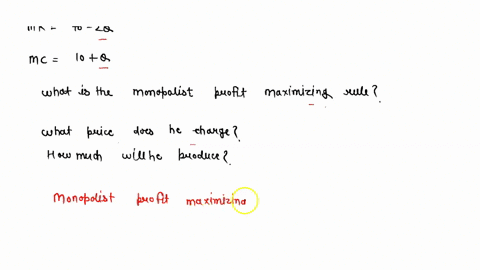 MR = 40 - 2Q
MC = 10 + Q
what is the monopolist profit maximizing rule?
what price does he charge?
How much will he produce?
Monopolist profit maximizing